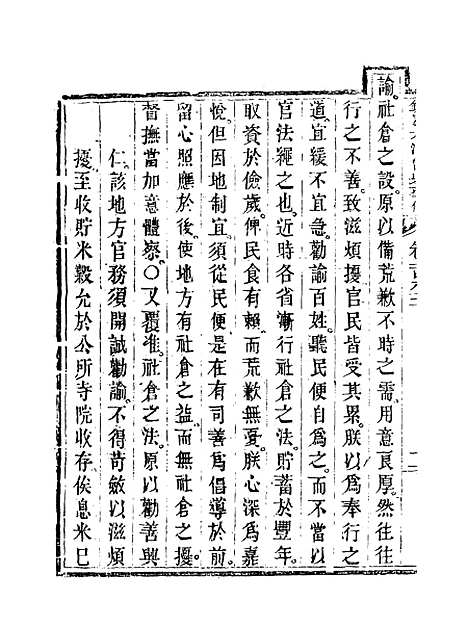 諭。社倉之設。原以備荒歉不時之需。用意良厚。然往往
行之不善。致滋煩擾官民皆受其累。朕以爲奉行之
道。宜緩不宜急。勸諭百姓。聽民便自爲之。而不當以
官法繩之也。近時各省漸行社倉之法。貯蓄於豐年。
取資於儉歲。俾民食有賴。而荒歉無憂。朕心深爲嘉
悅。但因地制宜。須從民便。是在有司善爲倡導於前。
留心照應於後。使地方有社倉之益。而無社倉之擾。
督撫當加意體察。〇又覆准。社倉之法。原以勸善興
仁。該地方官務須開誠勸諭。不得苛斂以滋煩
擾。至收貯米穀允於公所寺院收存俟息米已